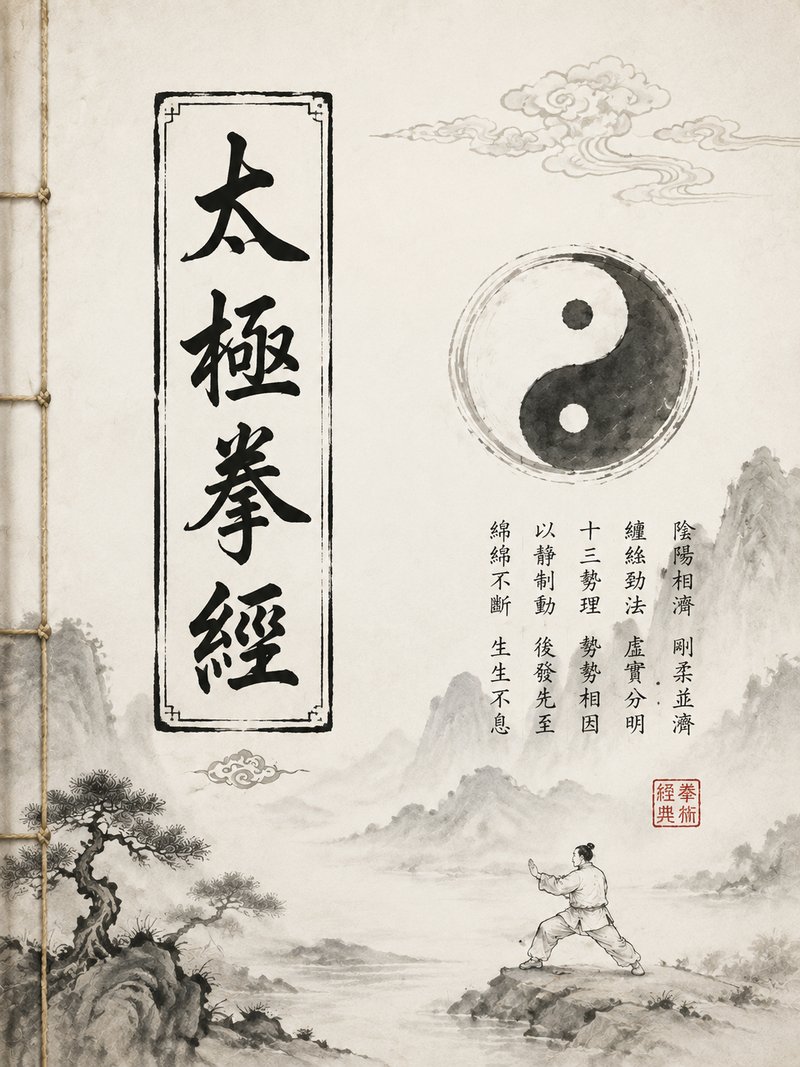 太極拳經
陰陽相濟 剛柔並濟
纏絲勁法 虛實分明
十三勢理 勢勢相因
以静制動 後發先至
綿綿不斷 生生不息
拳術
經典